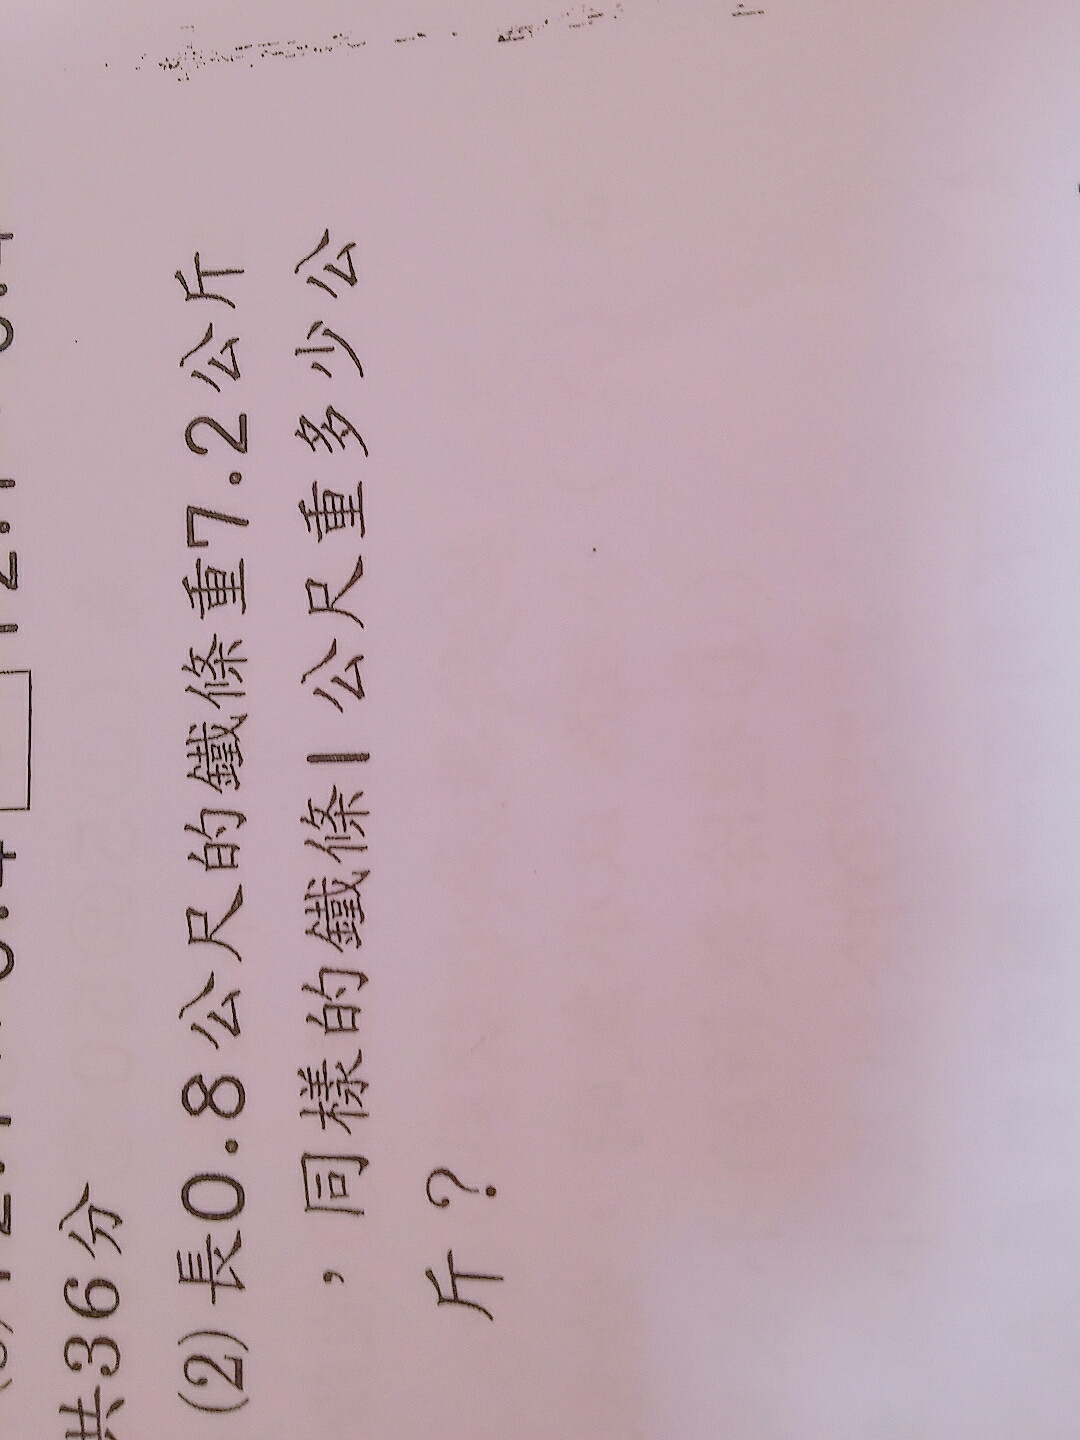 共36分
(2) 長0.8公尺的鐵條重7.2公斤
，同樣的鐵條1公尺重多少公
斤？